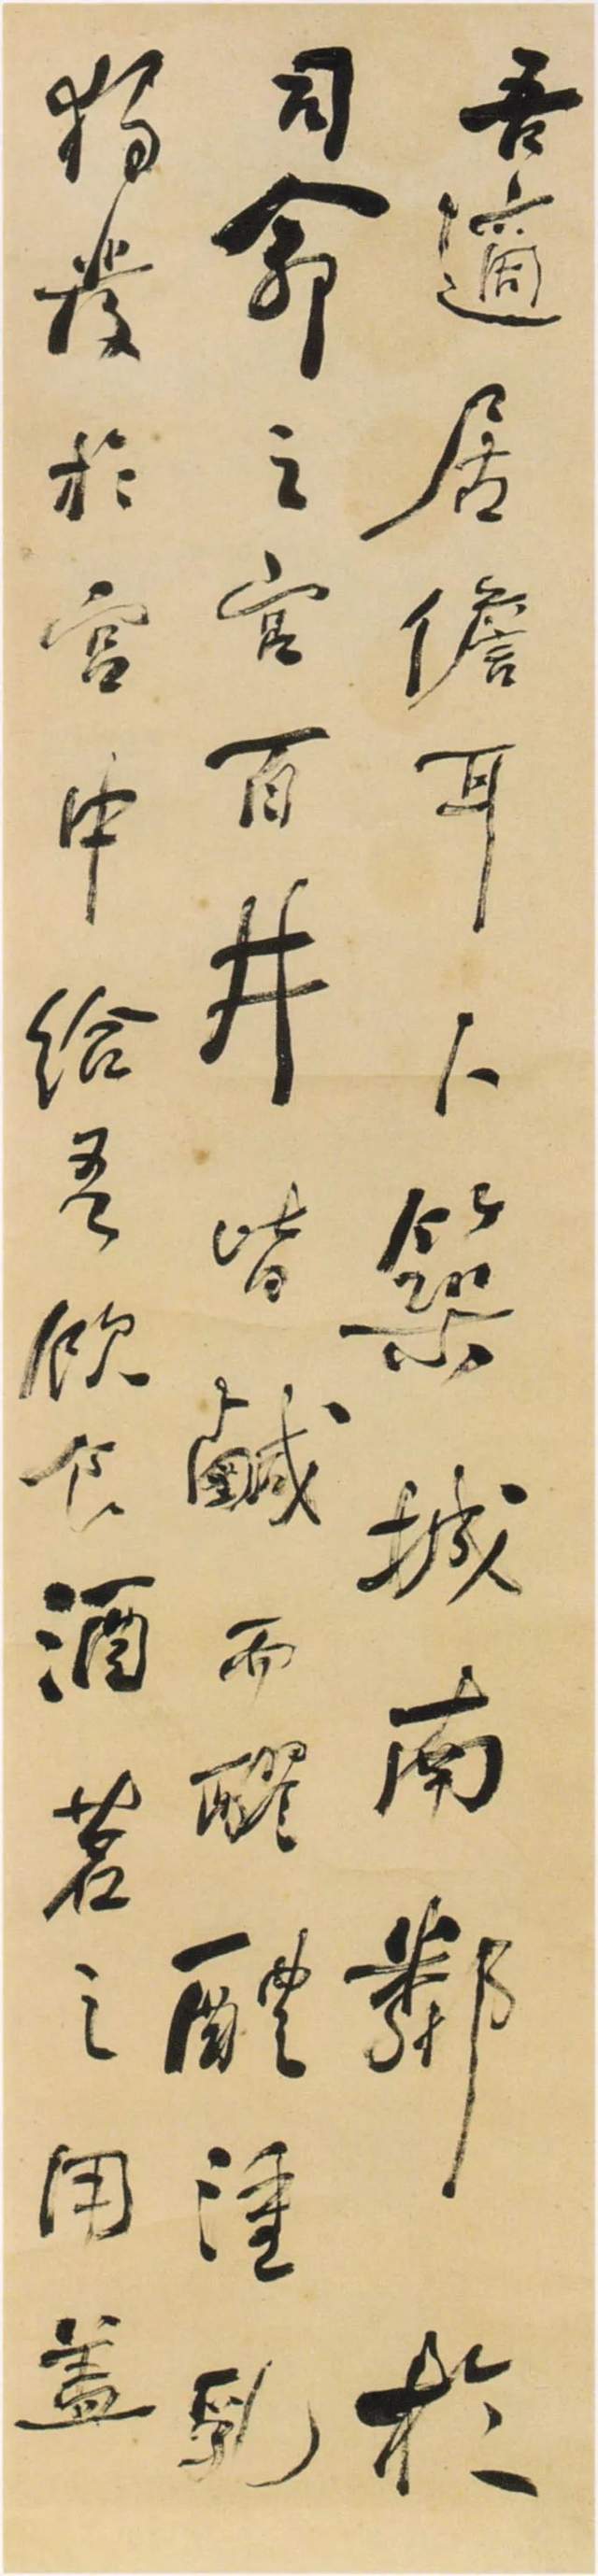 吾適居儋耳卜築城南鄰於
司命之宮百井皆鹹而醪醴湩乳
獨發於宮中給吾飲食酒茗之用盖